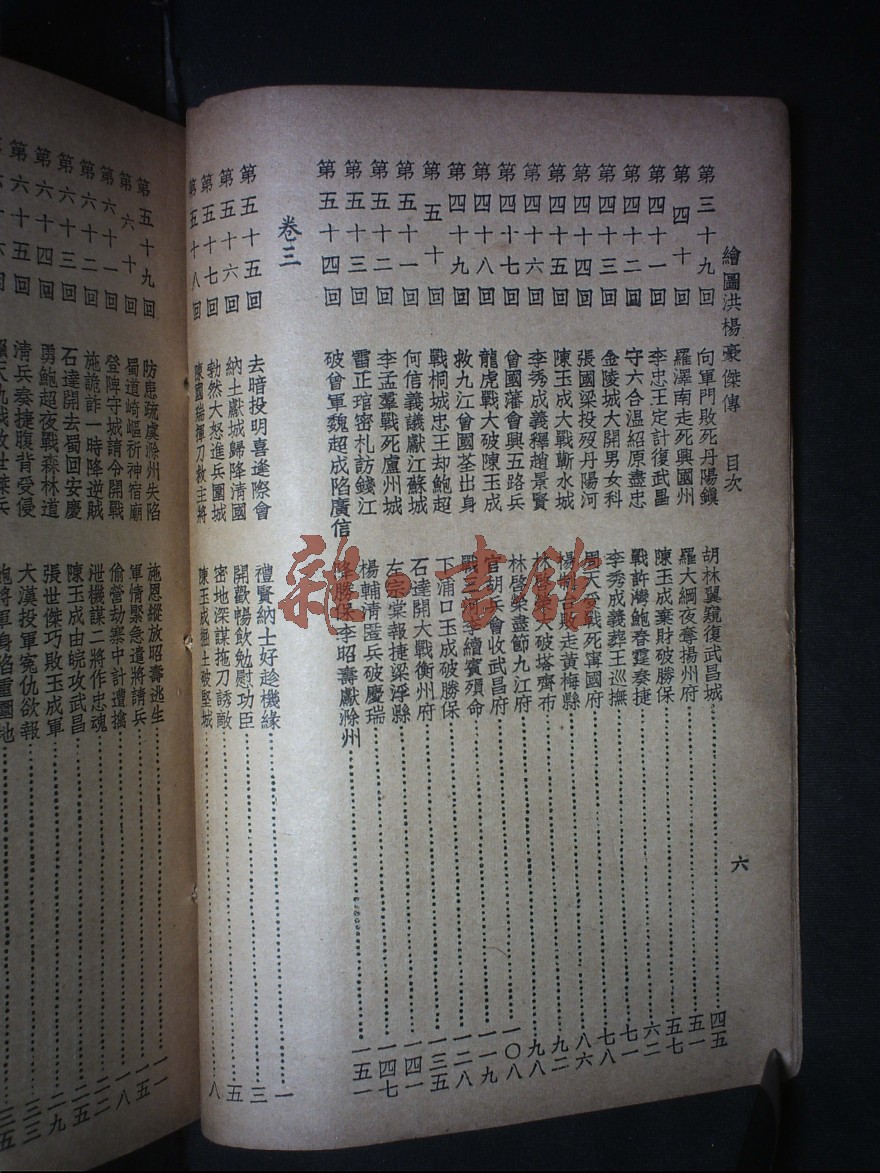 繪圖洪楊豪傑傳 目次 六
第三十九回 向軍門敗死丹陽鎮 胡林翼窺復武昌城 四五
第四十回 羅澤南走死興國州 羅大綱夜奪揚州府 五一
第四十一回 李忠王定計復武昌 陳玉成棄財破勝保 五七
第四十二回 守六合温紹原盡忠 戰許灣鮑春霆奏捷 六二
第四十三回 金陵城大開男女科 李秀成義葬王巡撫 七一
第四十四回 張國梁投歿丹陽河 周天受戰死寗國府 七八
第四十五回 陳玉成大戰蘄水城 楊輔清敗走黃梅縣 八六
第四十六回 李秀成義釋趙景賢 林啓榮大破塔齊布 九二
第四十七回 曾國藩會興五路兵 林啓榮盡節九江府 九八
第四十八回 龍虎戰大破陳玉成 官胡兵會收武昌府 一〇八
第四十九回 救九江曾國荃出身 戰三河李續賓殞命 一一九
第五十回 戰桐城忠王却鮑超 下浦口玉成破勝保 一二八
第五十一回 何信義議獻江蘇城 石達開大戰衡州府 一三五
第五十二回 李孟羣戰死廬州城 左宗棠報捷梁淨縣 一四一
第五十三回 雷正琯密札訪錢江 楊輔清匿兵破慶瑞 一四七
第五十四回 破曾軍魏超成陷廣信 降勝保李昭壽獻滁州 一五一
卷三
第五十五回 去暗投明喜逢際會 禮賢納士好趁機緣 一
第五十六回 納土獻城歸降清國 開歡暢飲勉慰功臣 三
第五十七回 勃然大怒進兵圍城 密地深謀拖刀誘敵 五
第五十八回 陳國瑞揮刀救主將 陳玉成掘土破堅城 八
第五十九回 防患疏虞滁州失陷 施恩縱放昭壽逃生 一一
第六十回 蜀道崎嶇祈神宿廟 軍情緊急遣將請兵 一五
第六十一回 登陴守城請令開戰 偷營劫寨中計遭擒 一八
第六十二回 施詭詐一時降逆賊 泄機謀二將作忠魂 二二
第六十三回 石達開去蜀回安慶 陳玉成由皖攻武昌 二五
第六十四回 勇鮑超夜戰森林道 張世傑巧敗玉成軍 二九
第六十五回 清兵奏捷腹背受侵 大漢投軍寃仇欲報 三三
雜·書館